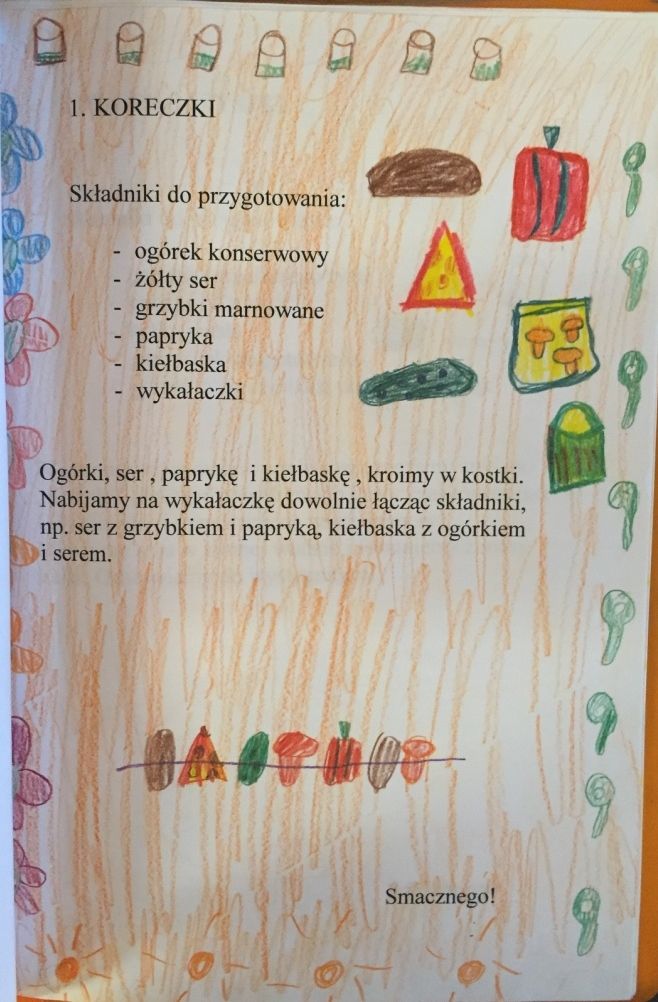 1. KORECZKI
Składniki do przygotowania:
- ogórek konserwowy
- żółty ser
- grzybki marnowane
- papryka
- kiełbaska
- wykałaczki
Ogórki, ser , paprykę i kiełbaskę , kroimy w kostki.
Nabijamy na wykałaczkę dowolnie łącząc składniki,
np. ser z grzybkiem i papryką, kiełbaska z ogórkiem
i serem.
Smacznego!